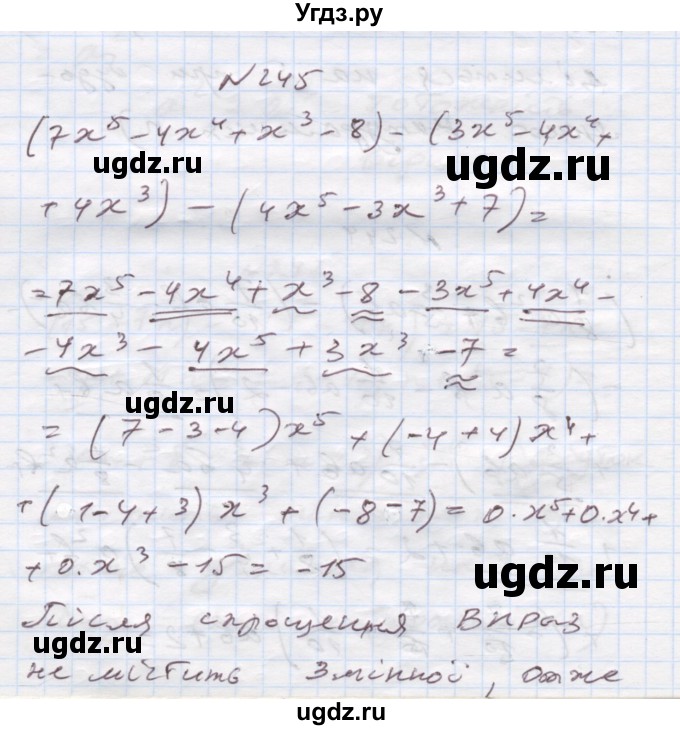 Угдз.ру
N 245
(7x⁵ - 4x⁴ + x³ - 8) - (3x⁵ - 4x⁴ +
ugdz.ru ugdz.ru
+ 4x³) - (4x⁵ - 3x³ + 7) =
= 7x⁵ - 4x⁴ + x³ - 8 - 3x⁵ + 4x⁴ -
- 4x³ - 4x⁵ + 3x³ - 7 =
ugdz.ru
= (7 - 3 - 4)x⁵ + (-4 + 4)x⁴ +
+ (1 - 4 + 3)x³ + (-8 - 7) = 0·x⁵ + 0·x⁴ +
+ 0·x³ - 15 = -15
ugdz.ru
Після спрощення вираз
не містить змінної, отже
ugdz.ru